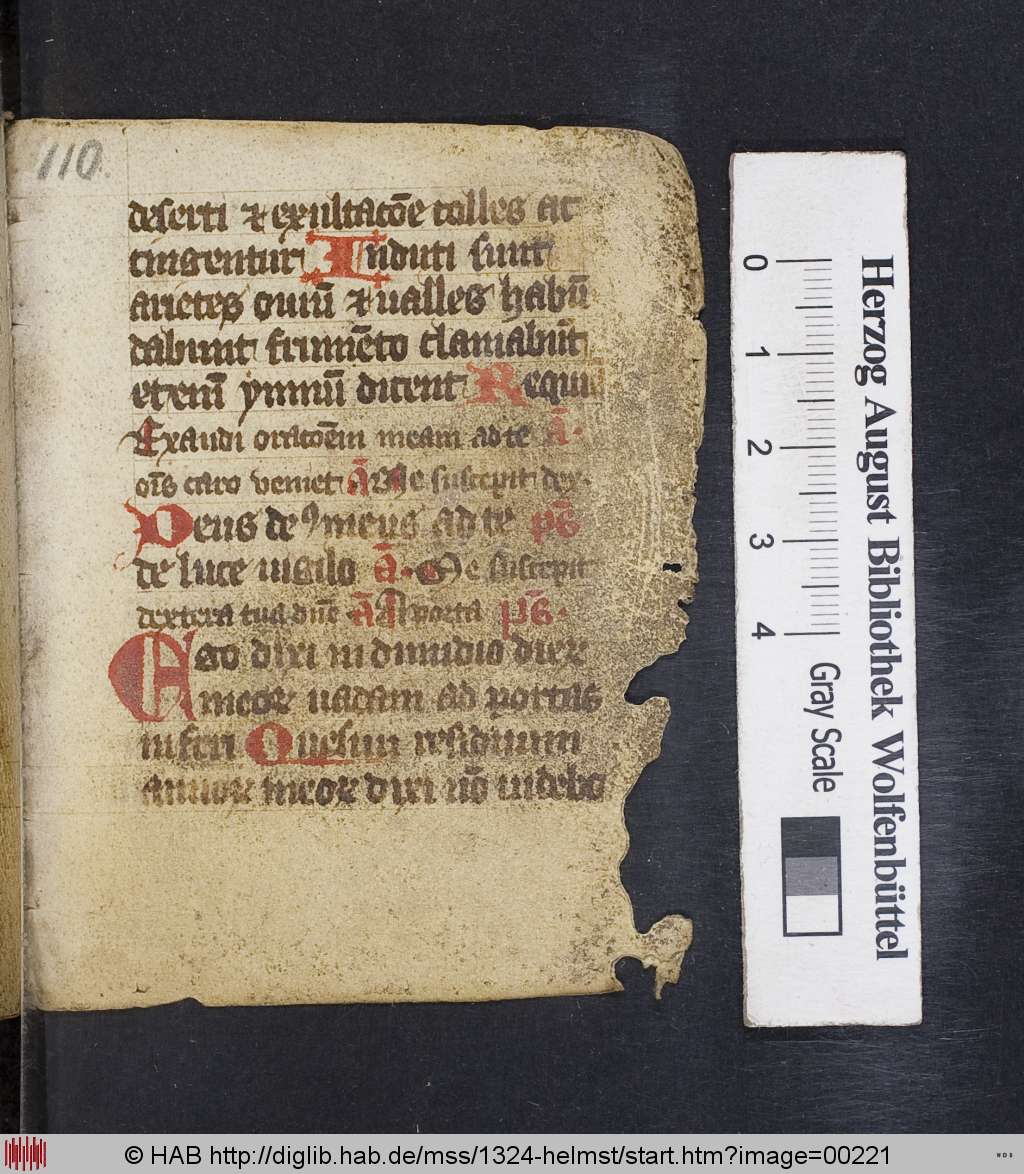 110.
deserti et exultacōe colles ac
cingentur Induti sunt
arietes ouiū et ualles habū
dabunt frumēto clamabūt
etenī ymnū dicent Requiē
Exaudi oracōem meam ad te Ā.
oīs caro veniet Ā Me suscepit dex.
Deus deꝰ meus ad te pſ̄
de luce uigilo Ā. Me suscepit
dextera tua dn̄e Ā A porta pſ̄.
Ego dixi in dimidio dieꝝ
meoꝝ uadam ad portas
inferi Quesiui residuum
annoꝝ meoꝝ dixi nō uidebo
Herzog August Bibliothek Wolfenbüttel
0 1 2 3 4
Gray Scale
© HAB http://diglib.hab.de/mss/1324-helmst/start.htm?image=00221
WDB